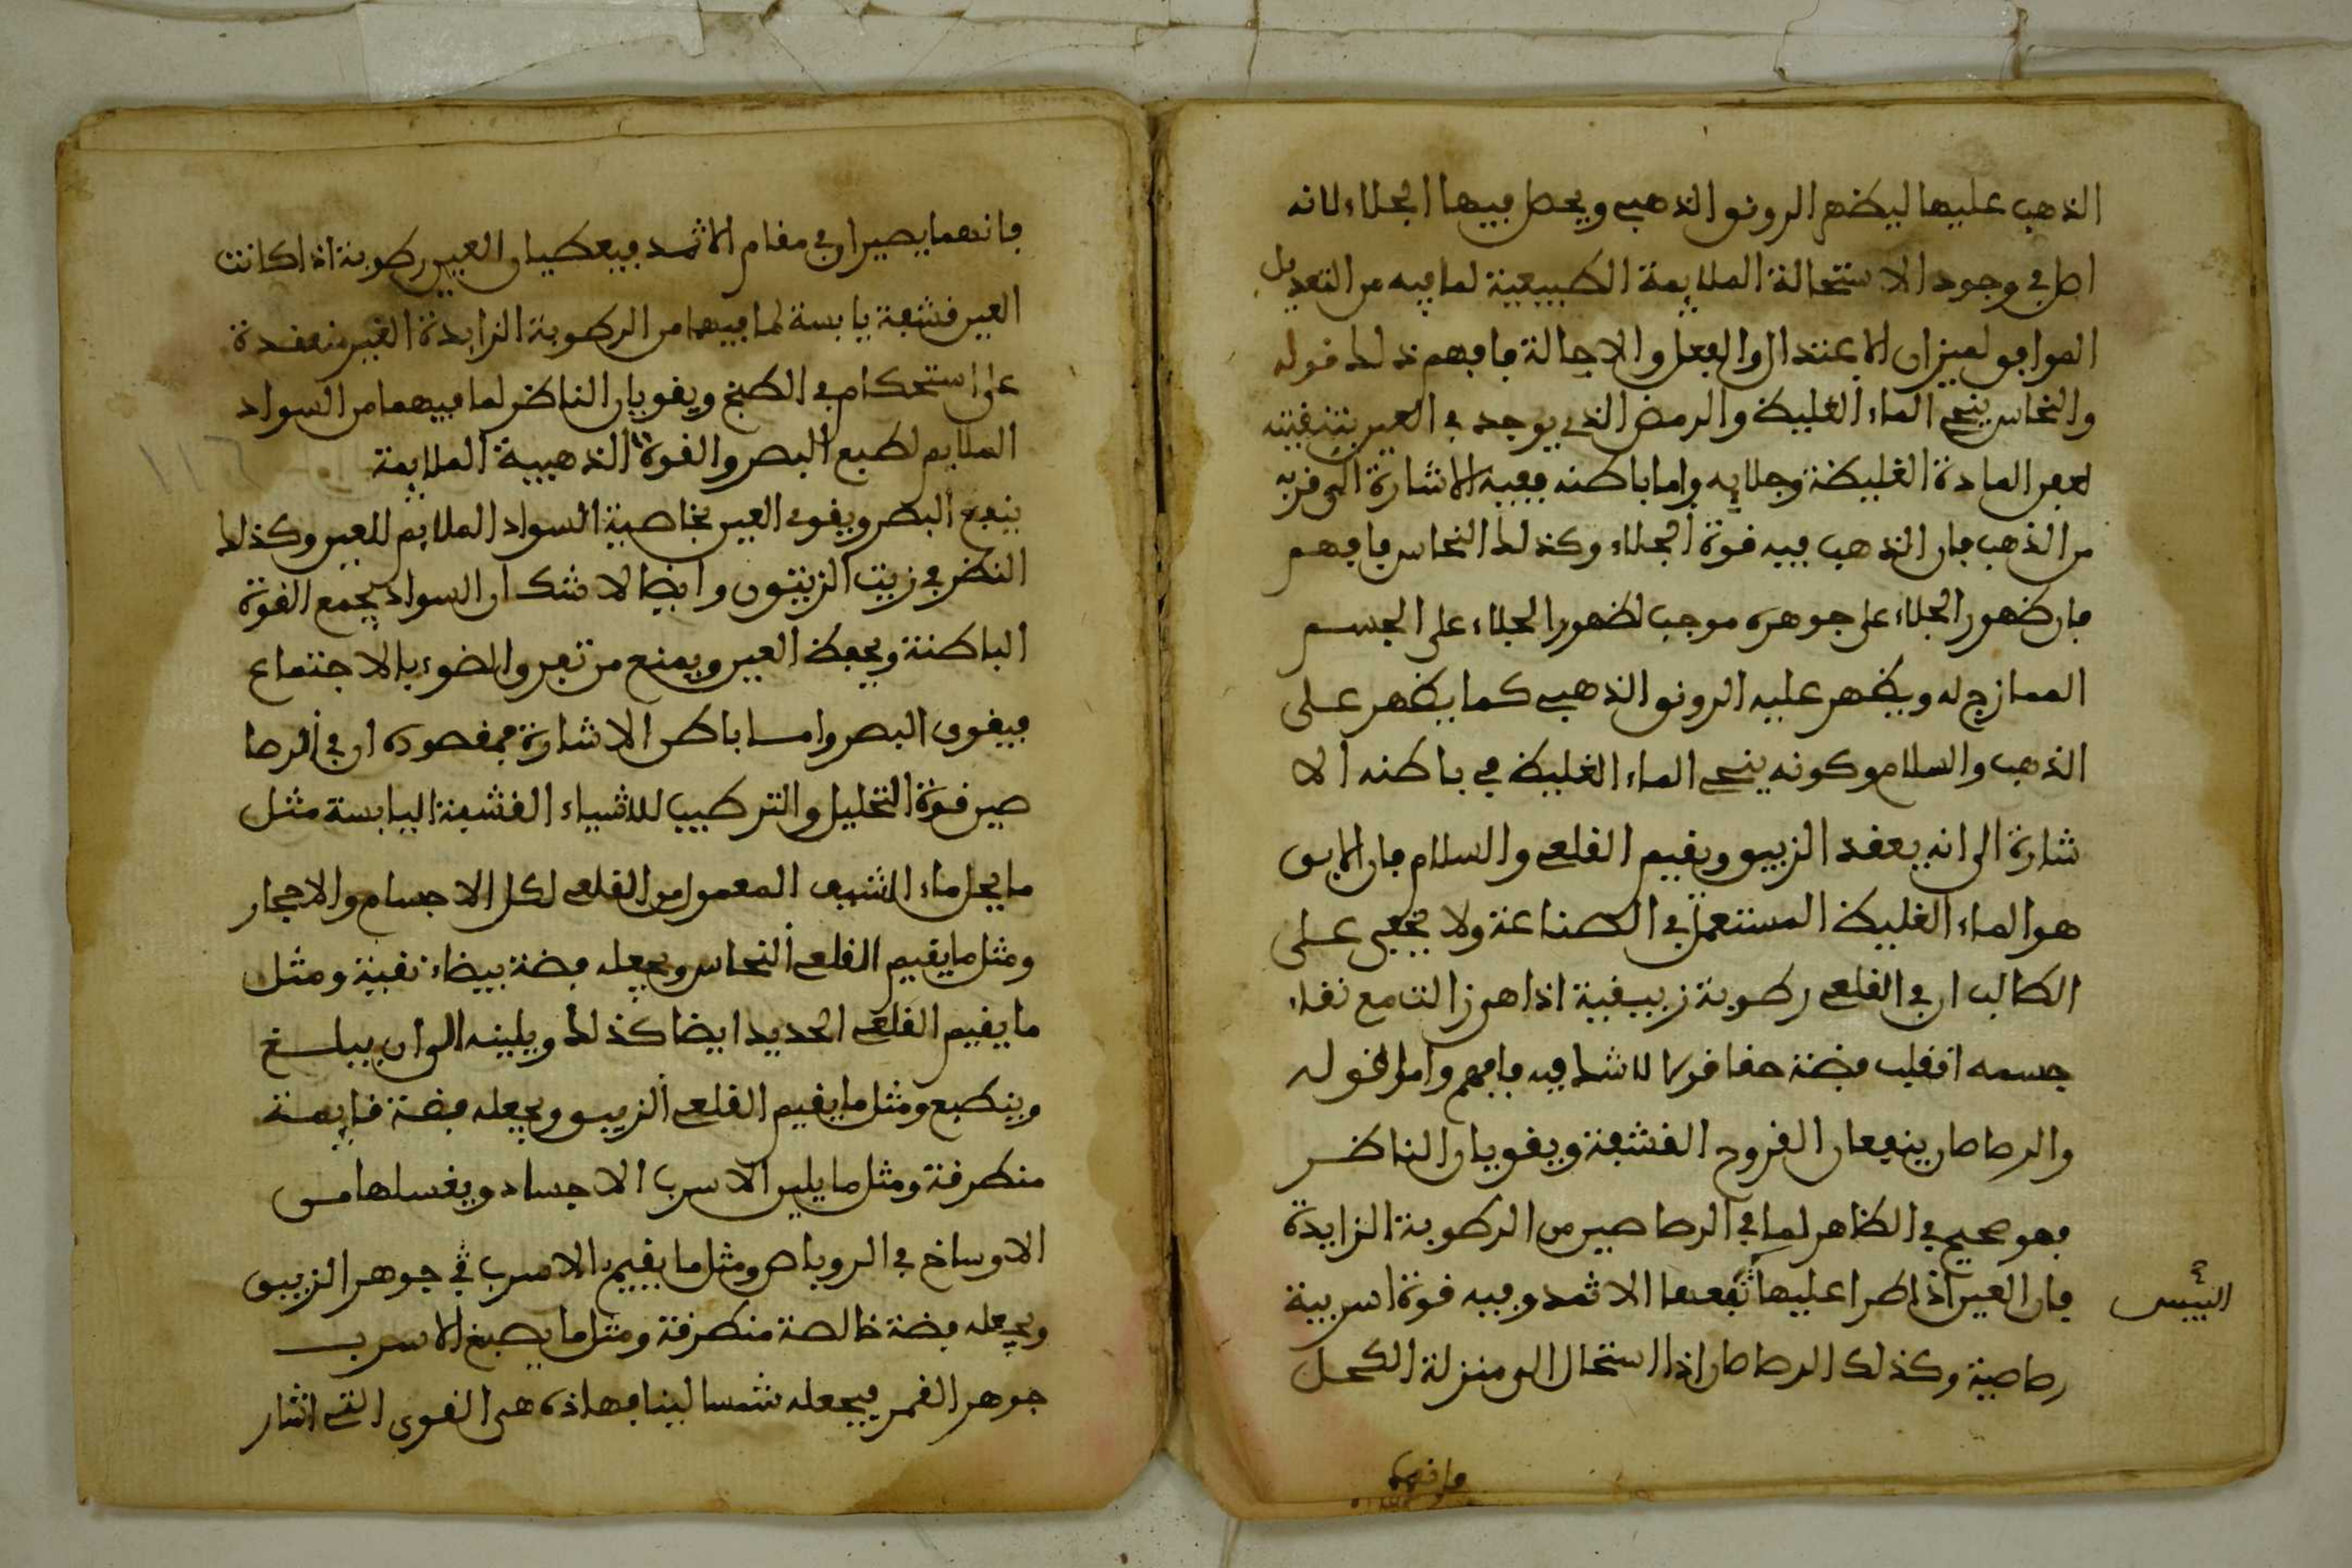 الذهب عليها ليظهر الرونق الذهبي ويحصل فيها الجلاء لانه
اصل في وجود الاستحالة الملايمة الطبيعية لما فيه من التعديل
الموافق لميزان الاعتدال والفعل والاحالة فافهم ذلك قوله
والنحاس ينحي الماء الغليظ والرمض الذي يوجد في العين بتنقيته
لعفن المادة الغليظة وجلايه واما باطنه ففيه الاشارة الى قربه
من الذهب فان الذهب فيه قوة الجلاء وكذلك النحاس فافهم
فان ظهور الجلاء على جوهره موجب لظهور الجلاء على الجسم
الممازج له ويظهر عليه الرونق الذهبي كما يظهر على
الذهب والسلام وكونه ينحي الماء الغليظ في باطنه الا
شارة الى انه يعقد الزيبق ويقيم القلعي والسلام فان الابق
هو الماء الغليظ المستعمل في الصناعة ولا يخفى على
الطالب ان في القلعي رطوبة زيبقية اذا هي زالت مع نقاء
جسمه انقلب فضة حقا قولا لا شك فيه فافهم واما قوله
والرصاصان ينفعان القروح القشفة ويقويان الناظر
فهو صحيح في الظاهر لما في الرصاصين من الرطوبة الزايدة
فان العين اذا طرا عليها نفعها الاثمد وفيه قوة اسربية
اليبس
رصاصية وكذلك الرصاصان اذا استحال الى منزلة الكحل
فانهما
فانهما يصيران في مقام الاثمد فيعطيان العين رطوبة اذا كانت
العين قشفة يابسة لما فيهما من الرطوبة الزايدة الغير منعقدة
على استحكام في الطبخ ويقويان الناظر لما فيهما من السواد
الملايم لطبع البصر والقوة الذهبية الملايمة
ينفع البصر ويقوي العين بخاصية السواد الملايم للعين وكذلك
النظر في زيت الزيتون وايضا لا شك ان السواد يجمع القوة
الباطنة ويحفظ العين ويمنع من تفرق الضوء بالاجتماع
فيقوى البصر واما باطن الاشارة فمقصوده ان في الرصا
صين قوة التحليل والتركيب للاشياء القشفة اليابسة مثل
ما يحل ماء الشب المعمول من القلعي لكل الاجسام والاحجار
ومثل ما يقيم القلعي النحاس ويجعله فضة بيضاء نقية ومثل
ما يقيم القلعي الحديد ايضا كذلك ويلينه الى ان يبلغ
وينطبع ومثل ما يقيم القلعي الزيبق ويجعله فضة قايمة
منطرقة ومثل ما يلين الاسرب الاجساد ويغسلها من
الاوساخ في الروباص ومثل ما يقيم الاسرب في جوهر الزيبق
ويجعله فضة خالصة منطرقة ومثل ما يصبغ الاسرب
جوهر القمر فيجعله شمسا لينا فهاذه هي القوى التي اشار
١١٦